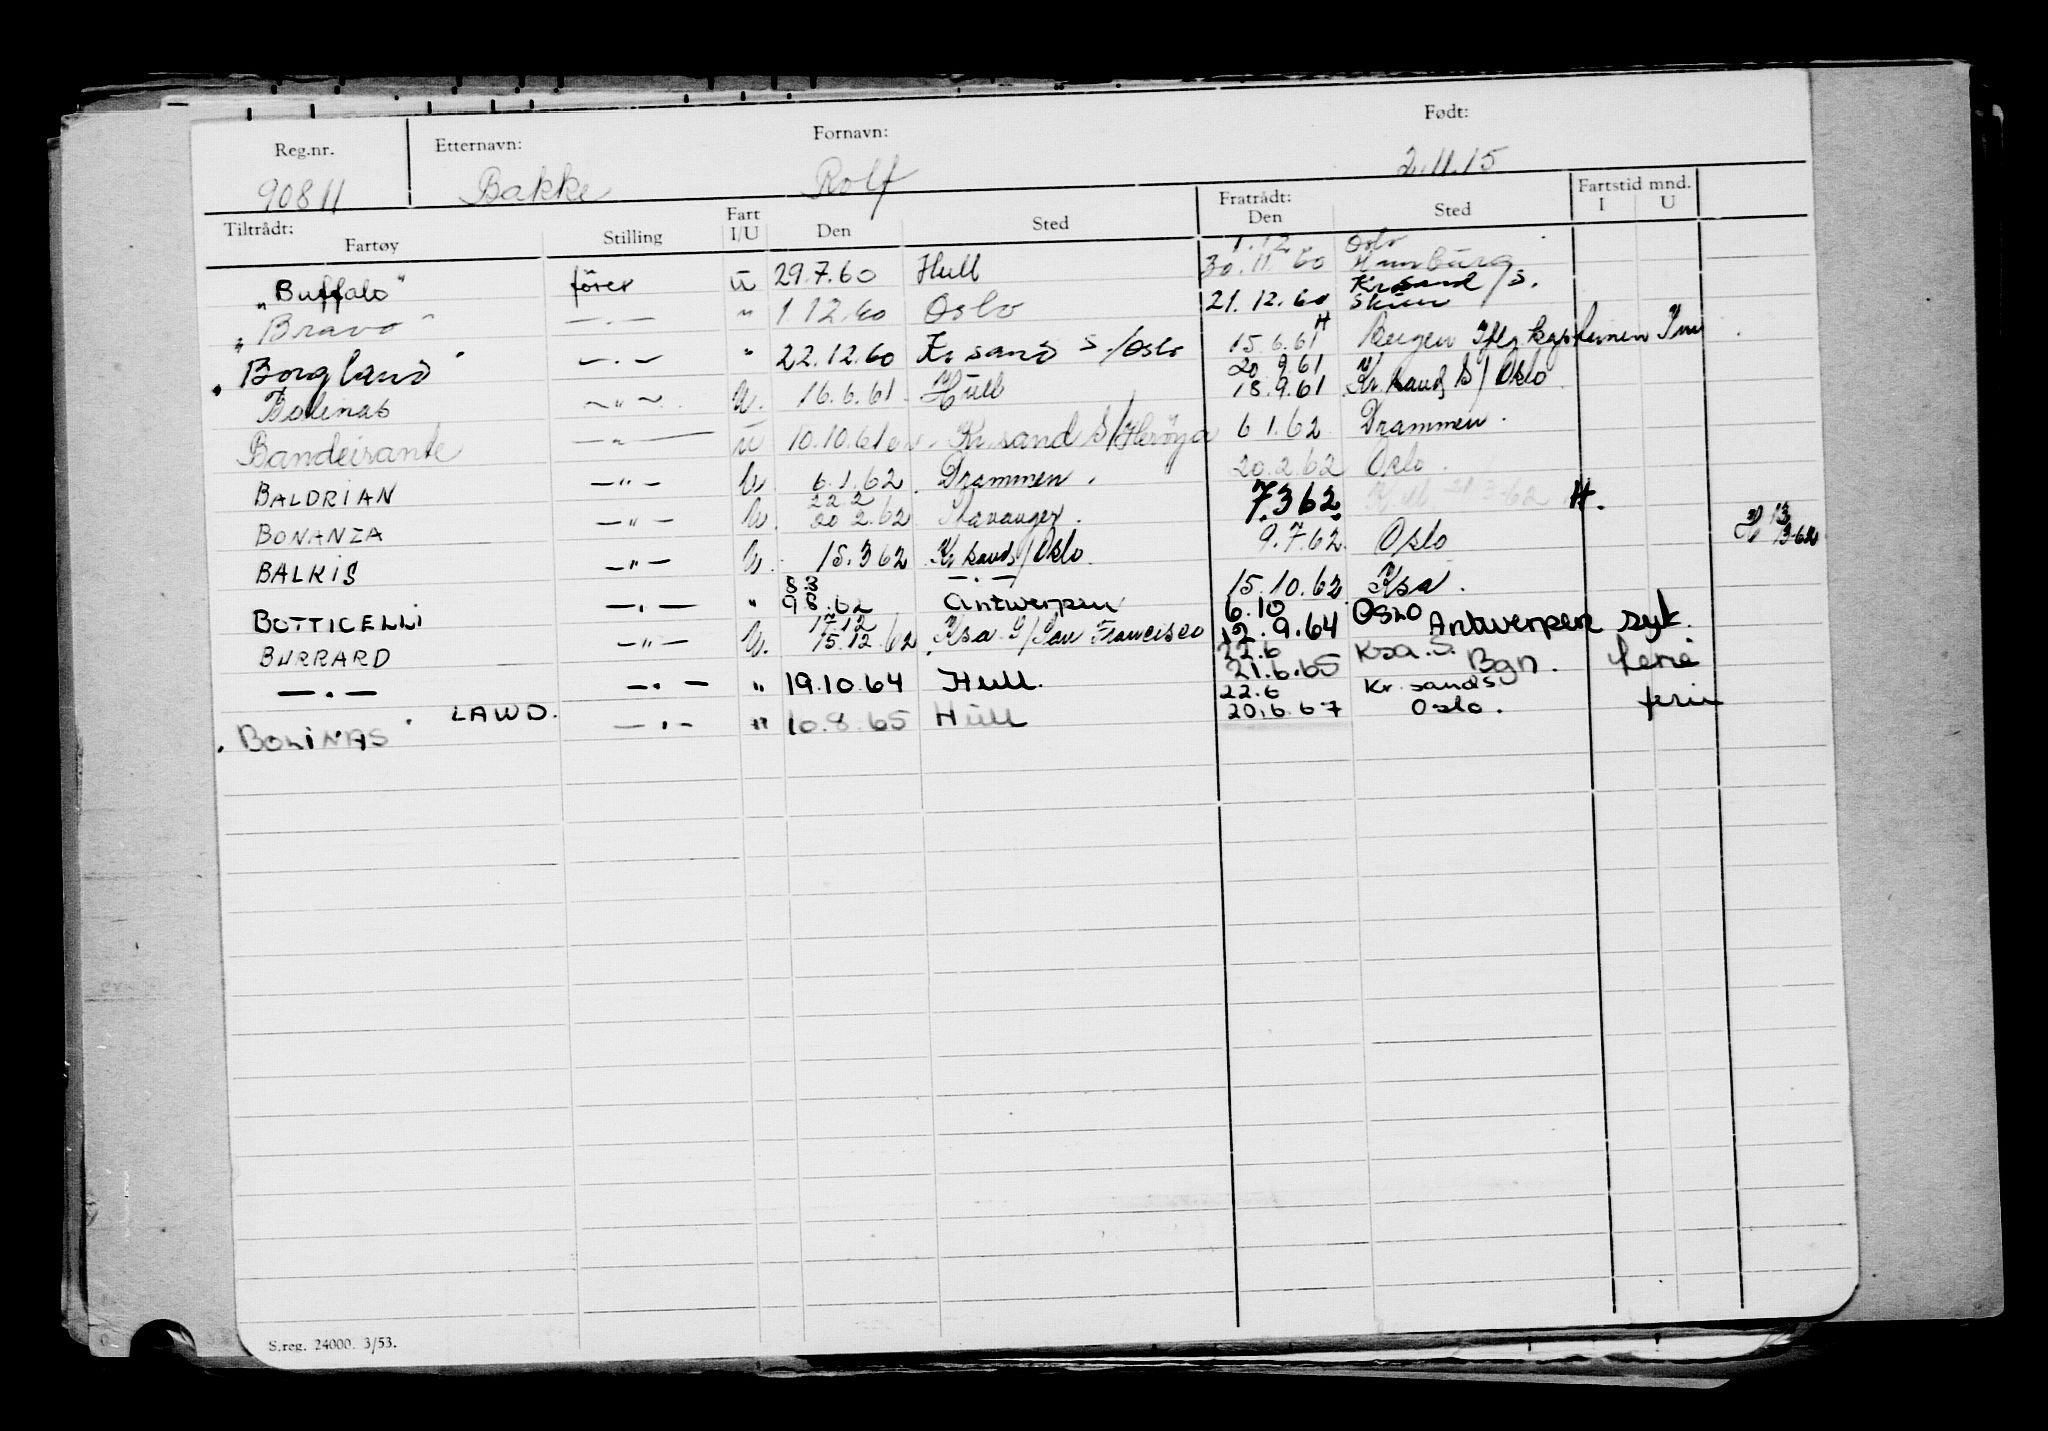 Reg.nr. Etternavn: Fornavn: Født:
90811 Bakke Rolf 2.11.15
Tiltrådt: Fratrådt: Fartstid mnd.
Fartøy Stilling Fart I/U Den Sted Den Sted I U
1.12. Oslo
"Buffalo" förer U 29.7.60 Hull 30.11.60 Hamburg
"Bravo" — . — " 1 12.60 Oslo 21.12.60 Kr.sand/S. Skien
"Borgland" — . — " 22.12.60 Kr sand S./Oslo 15.6.61 H Bergen
20 9.61
Bolinas — " — U. 16.6.61 Hull 18.9.61 Kr. sand S/Oslo
Bandeirante — " — U 10.10.61 Kr. sand S/Herøya 6 1.62 Drammen.
BALDRIAN — " — U. 6.1.62. Drammen. 20.2.62 Oslo.
22 2
BONANZA — " — U. 20 2.62 Stavanger. 7.3 62 H.
BALKIS — " — U. 15.3 62 Kr sand S/Oslo. 9.7.62. Oslo
BOTTICELLI — . — " 9 8.62 Antwerpen 15.10.62 Ksa.
17.12 6.10 OSLO
BURRARD — " — U. 15.12.62. Ksa S/San Francisco 12.9.64 Antwerpen syk.
22.6 Ksa. S.
— . — — . — " 19.10.64 Hull. 21.6.65 Bgn. ferie
22.6 Kr. sands
"BOLINAS" LAWD. — . — " 10.8.65 Hull 20.6.67 Oslo. ferie
S.reg. 24000. 3/53.